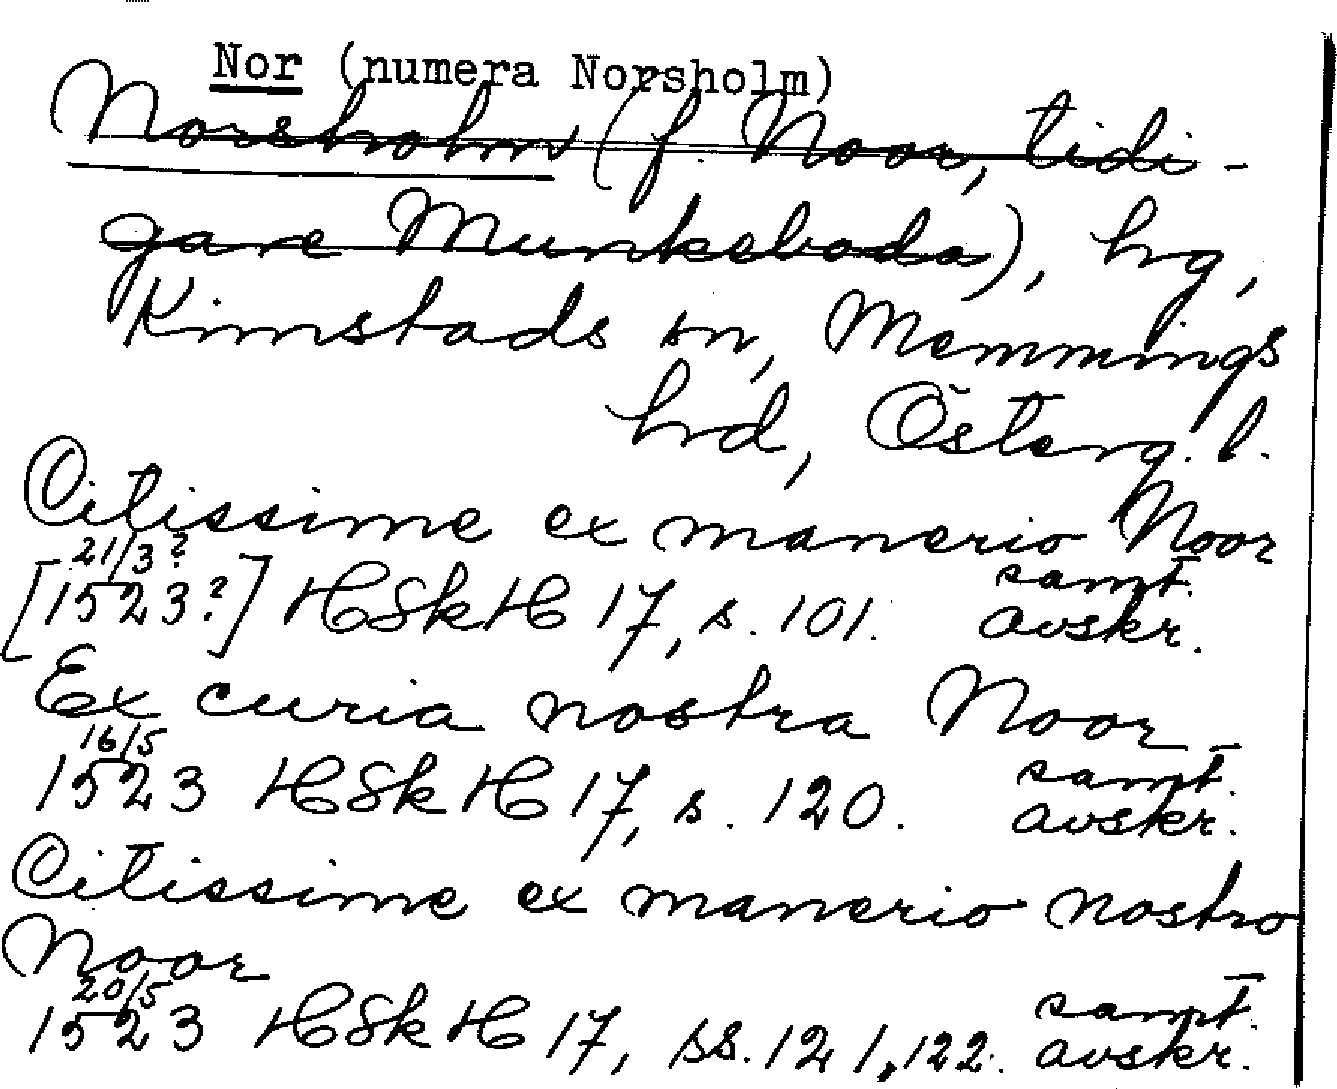 Nor (numera Norsholm)
Norsholm (f. Noor, tidi-
gare Munkeboda), hg,
Kimstads sn, Memmings
hrd, Österg. l.
Citissime ex manerio Noor
21/3?
[1523?] HSkH 17, s. 101. samt. avskr.
Ex curia nostra Noor
16/5
1523 HSkH 17, s. 120. samt. avskr.
Citissime ex manerio nostro
Noor
20/5
1523 HSkH 17, ss. 121, 122. samt. avskr.